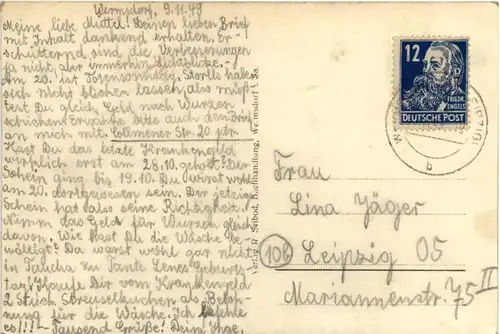 Wermsdorf, 9.11.49
Meine liebe Muttel! Deinen lieben Brief
mit Inhalt dankend erhalten. Er-
schütternd sind die
ja nicht, aber immerhin
Am 20. ist Totensonntag. Storlls haben
sich nicht blicken lassen, also müß-
test Du gleich Geld nach Wurzen
schicken. Erwähne bitte auch den Brief
an mich mit. Colmener Str. 20 ptr.
Hast Du das letzte Krankengeld
wirklich erst am 28.10. geholt? Der
Schein ging bis 19.10. Du wirst wohl
am 20. dortgewesen sein. Der jetzige
Schein hat also seine Richtigkeit.
Nimm das Geld für Wurzen gleich
davon. Wie hast Du die Wäsche be-
wältigt? Du warst wohl gar nicht
in Taucha zu Tante Lenes Geburts-
tag? Kaufe Dir vom Krankengeld
2 Stück Streuselkuchen als Beloh-
nung für die Wäsche. Ich befehle
es!!! - Tausend Grüße! Dein
Verlag R. Seibod, Buchhandlung, Wermsdorf i. Sa.
12
FRIEDR.
ENGELS
DEUTSCHE POST
b
Frau
Lina Jäger
(10b) Leipzig O5
Mariannenstr. 75 II